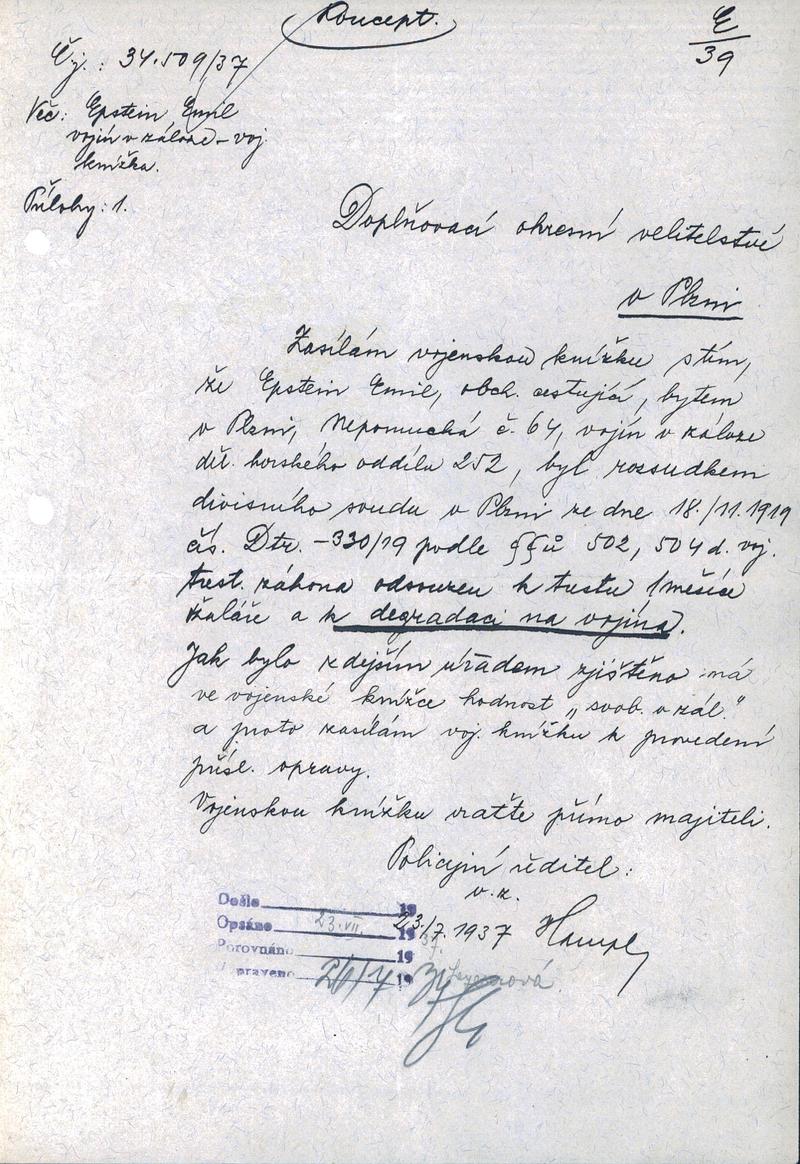 Koncept.
E
39
Čj.: 34.509/37
Věc: Epstein Emil
vojín v záloze - voj.
knížka.
Přílohy: 1.
Doplňovací okresní velitelství
v Plzni
Zasílám vojenskou knížku s tím,
že Epstein Emil, obch. cestující, bytem
v Plzni, Nepomucká č. 64, vojín v záloze
děl. horského oddílu 252, byl rozsudkem
divisního soudu v Plzni ze dne 18./11.1919
čís. Dtr. -330/19 podle §§ů 502, 504 d. voj.
trest. zákona odsouzen k trestu 1 měsíce
žaláře a k degradaci na vojína.
Jak bylo zdejším úřadem zjištěno má
ve vojenské knížce hodnost „svob. v zál."
a proto zasílám voj. knížku k provedení
přísl. opravy.
Vojenskou knížku vraťte přímo majiteli.
Policejní ředitel:
v. z.
23/7. 1937
Došlo 19
Opsáno 23. VII. 19 37.
Porovnáno 19
praveno 26/7 19 37